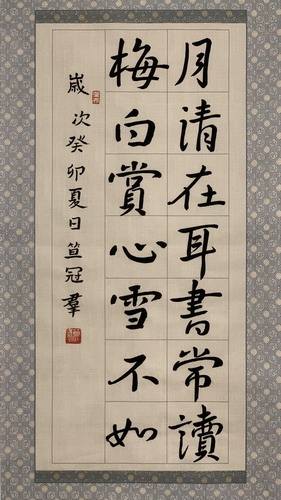 月清在耳書常讀
梅白賞心雪不如
歲次癸卯夏日笪冠羣